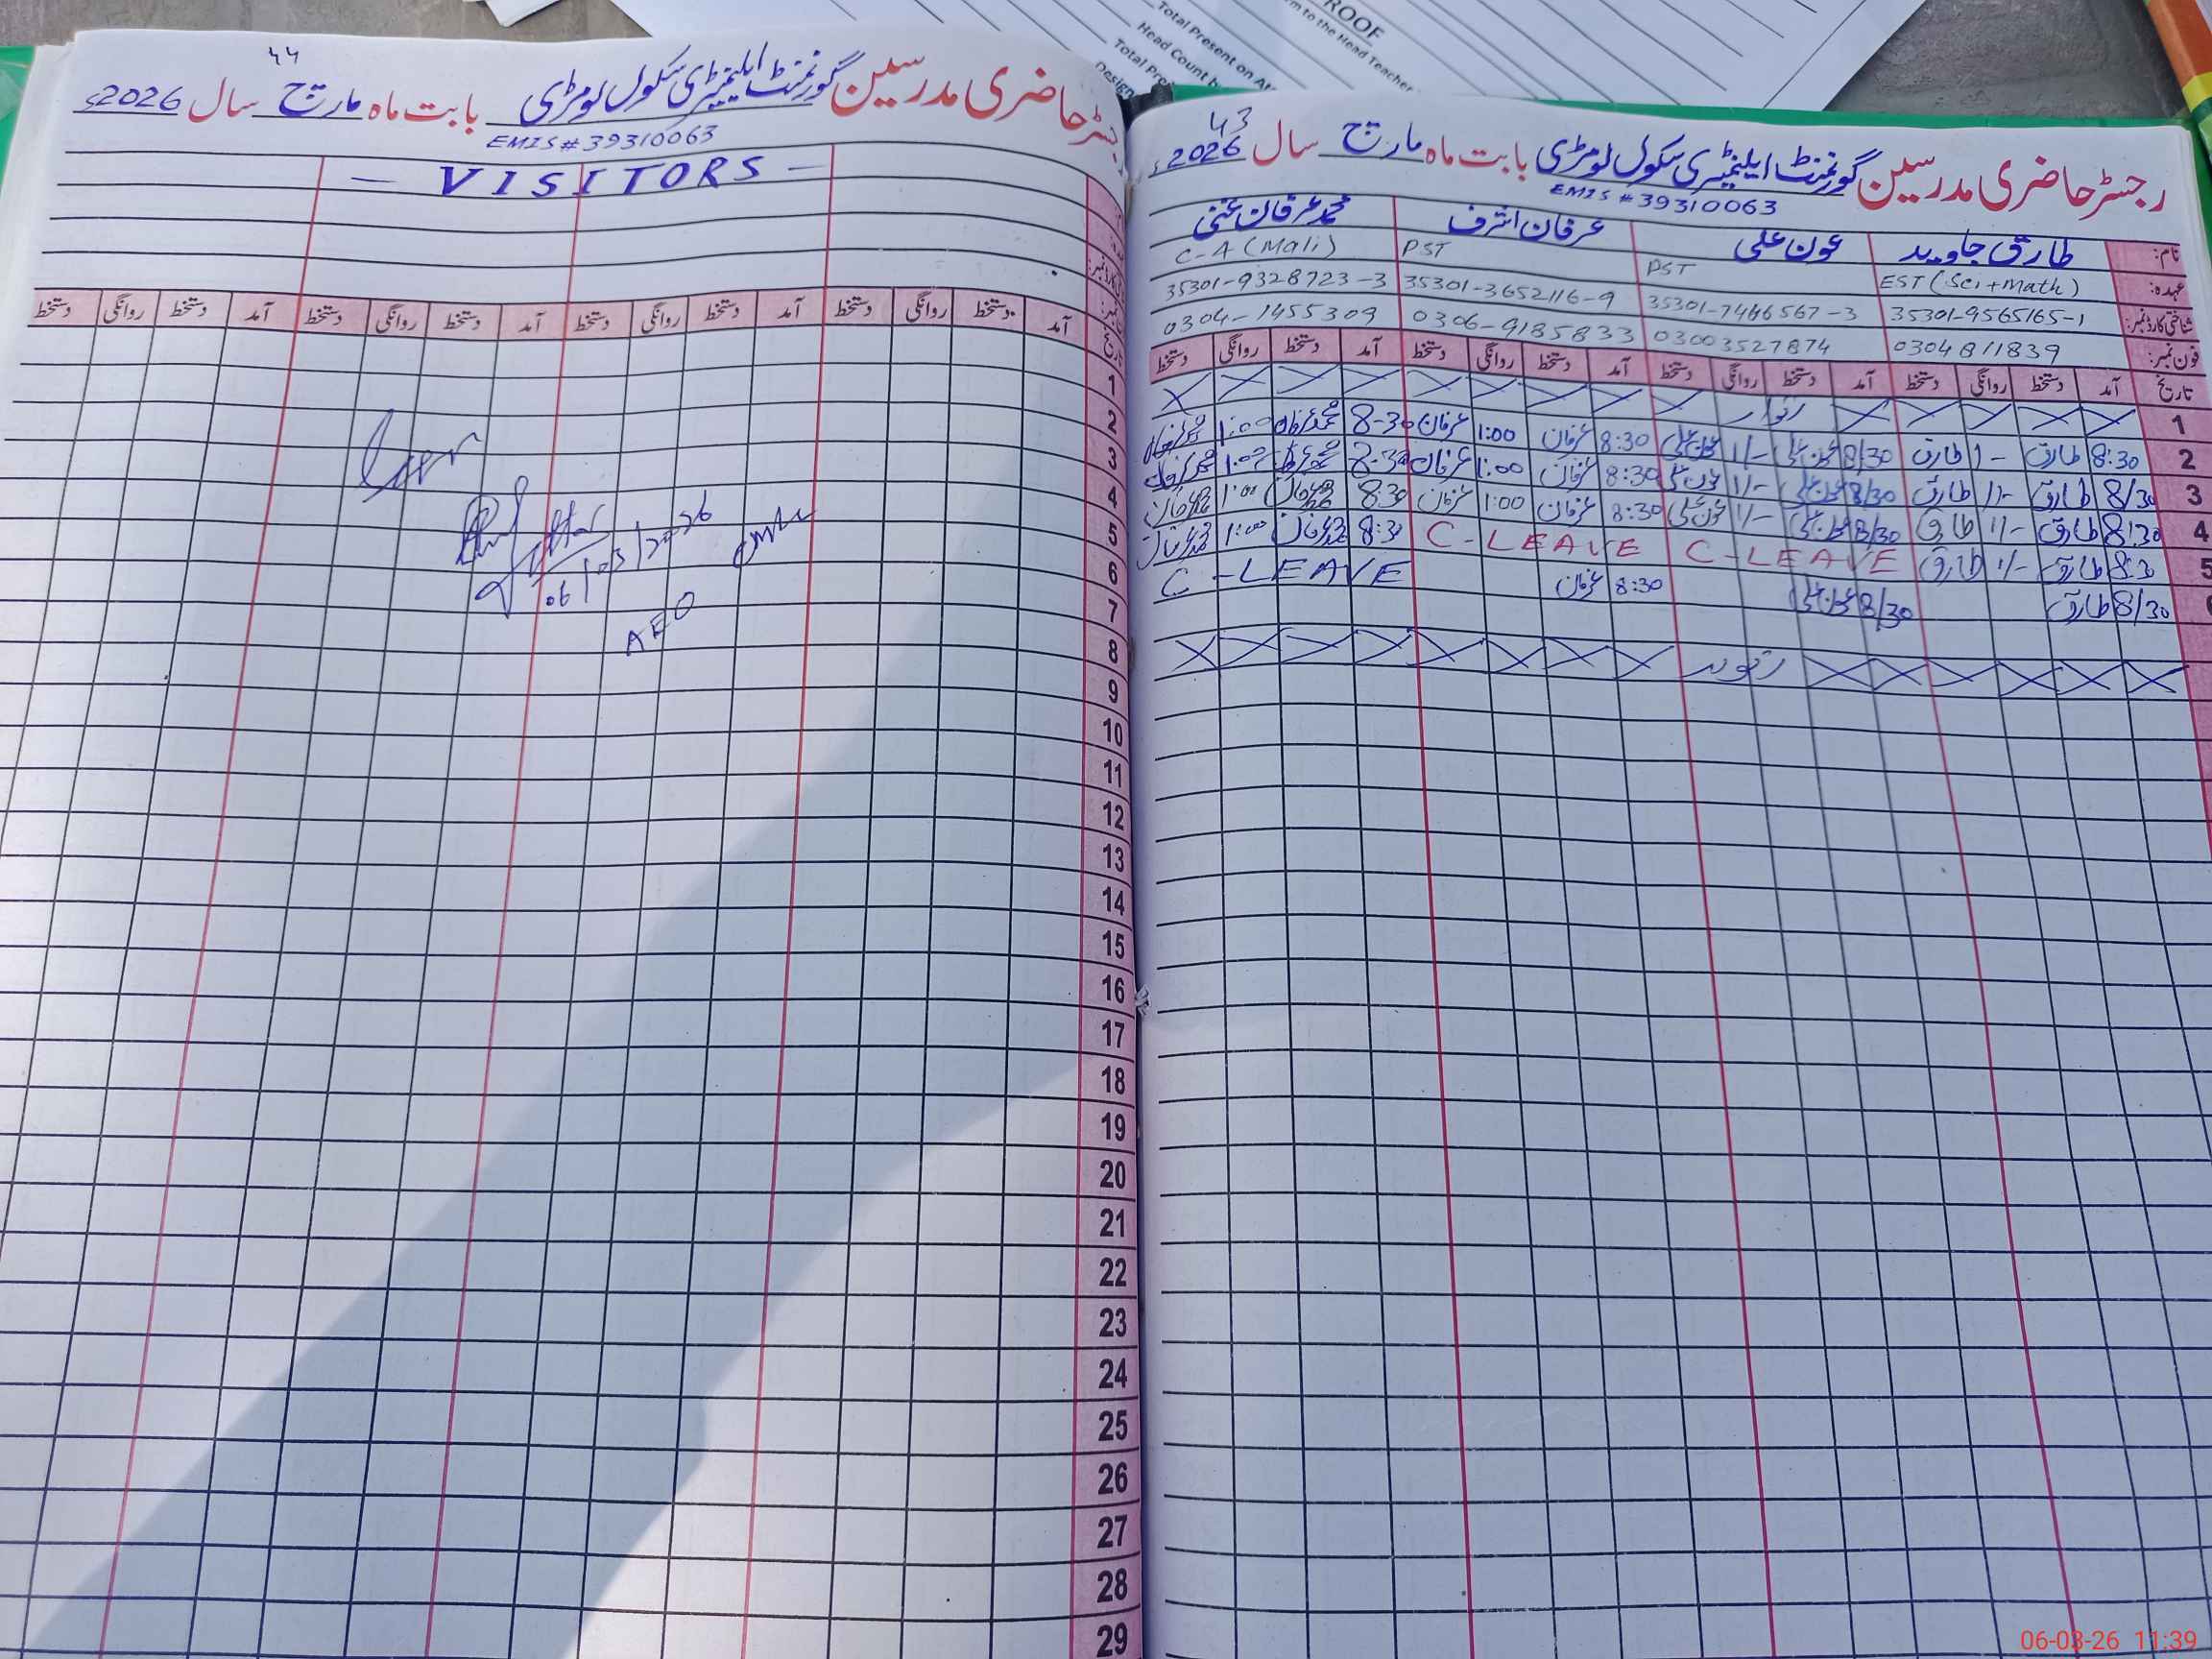 ROOF
m to the Head Teacher
Total Present on At
Head Count b
Total Pre
Design
44
رجسٹر حاضری مدرسین گورنمنٹ ایلیمنٹری سکول لومڑی بابت ماہ مارچ سال 2026ء
EMIS # 39310063
— VISITORS —
آمد دستخط روانگی دستخط آمد دستخط روانگی دستخط آمد دستخط روانگی دستخط آمد دستخط روانگی دستخط
1
2
3
4
5
6
06/03/2026
7
AEO
8
9
10
11
12
13
14
15
16
17
18
19
20
21
22
23
24
25
26
27
28
29
43
رجسٹر حاضری مدرسین گورنمنٹ ایلیمنٹری سکول لومڑی بابت ماہ مارچ سال 2026ء
EMIS # 39310063
نام: طارق جاوید عون علی عرفان اشرف محمد عرفان غنی
عہدہ: EST (Sci+Math) PST PST C-4 (Mali)
شناختی کارڈ نمبر: 35301-9565165-1 35301-7446567-3 35301-3652116-9 35301-9328723-3
فون نمبر: 0304811839 03003527874 0306-9185833 0304-1455309
تاریخ آمد دستخط روانگی دستخط آمد دستخط روانگی دستخط آمد دستخط روانگی دستخط آمد دستخط روانگی دستخط
1 اتوار
2 8:30 طارق 1/- طارق 8/30 عون علی 1/- عون علی 8:30 عرفان 1:00 عرفان 8-30 محمد عرفان 1:00 محمد عرفان
3 8/30 طارق 1/- طارق 8/30 عون علی 1/- عون علی 8:30 عرفان 1:00 عرفان 8-30 محمد عرفان 1:00 محمد عرفان
4 8:30 طارق 1/- طارق 8/30 عون علی 1/- عون علی 8:30 عرفان 1:00 عرفان 8:30 محمد عرفان 1:00 محمد عرفان
5 8:30 طارق 1/- طارق C-LEAVE C-LEAVE 8:30 محمد عرفان 1:00 محمد عرفان
8/30 طارق 8/30 عون علی 8:30 عرفان C-LEAVE
اتوار
06-03-26 11:39